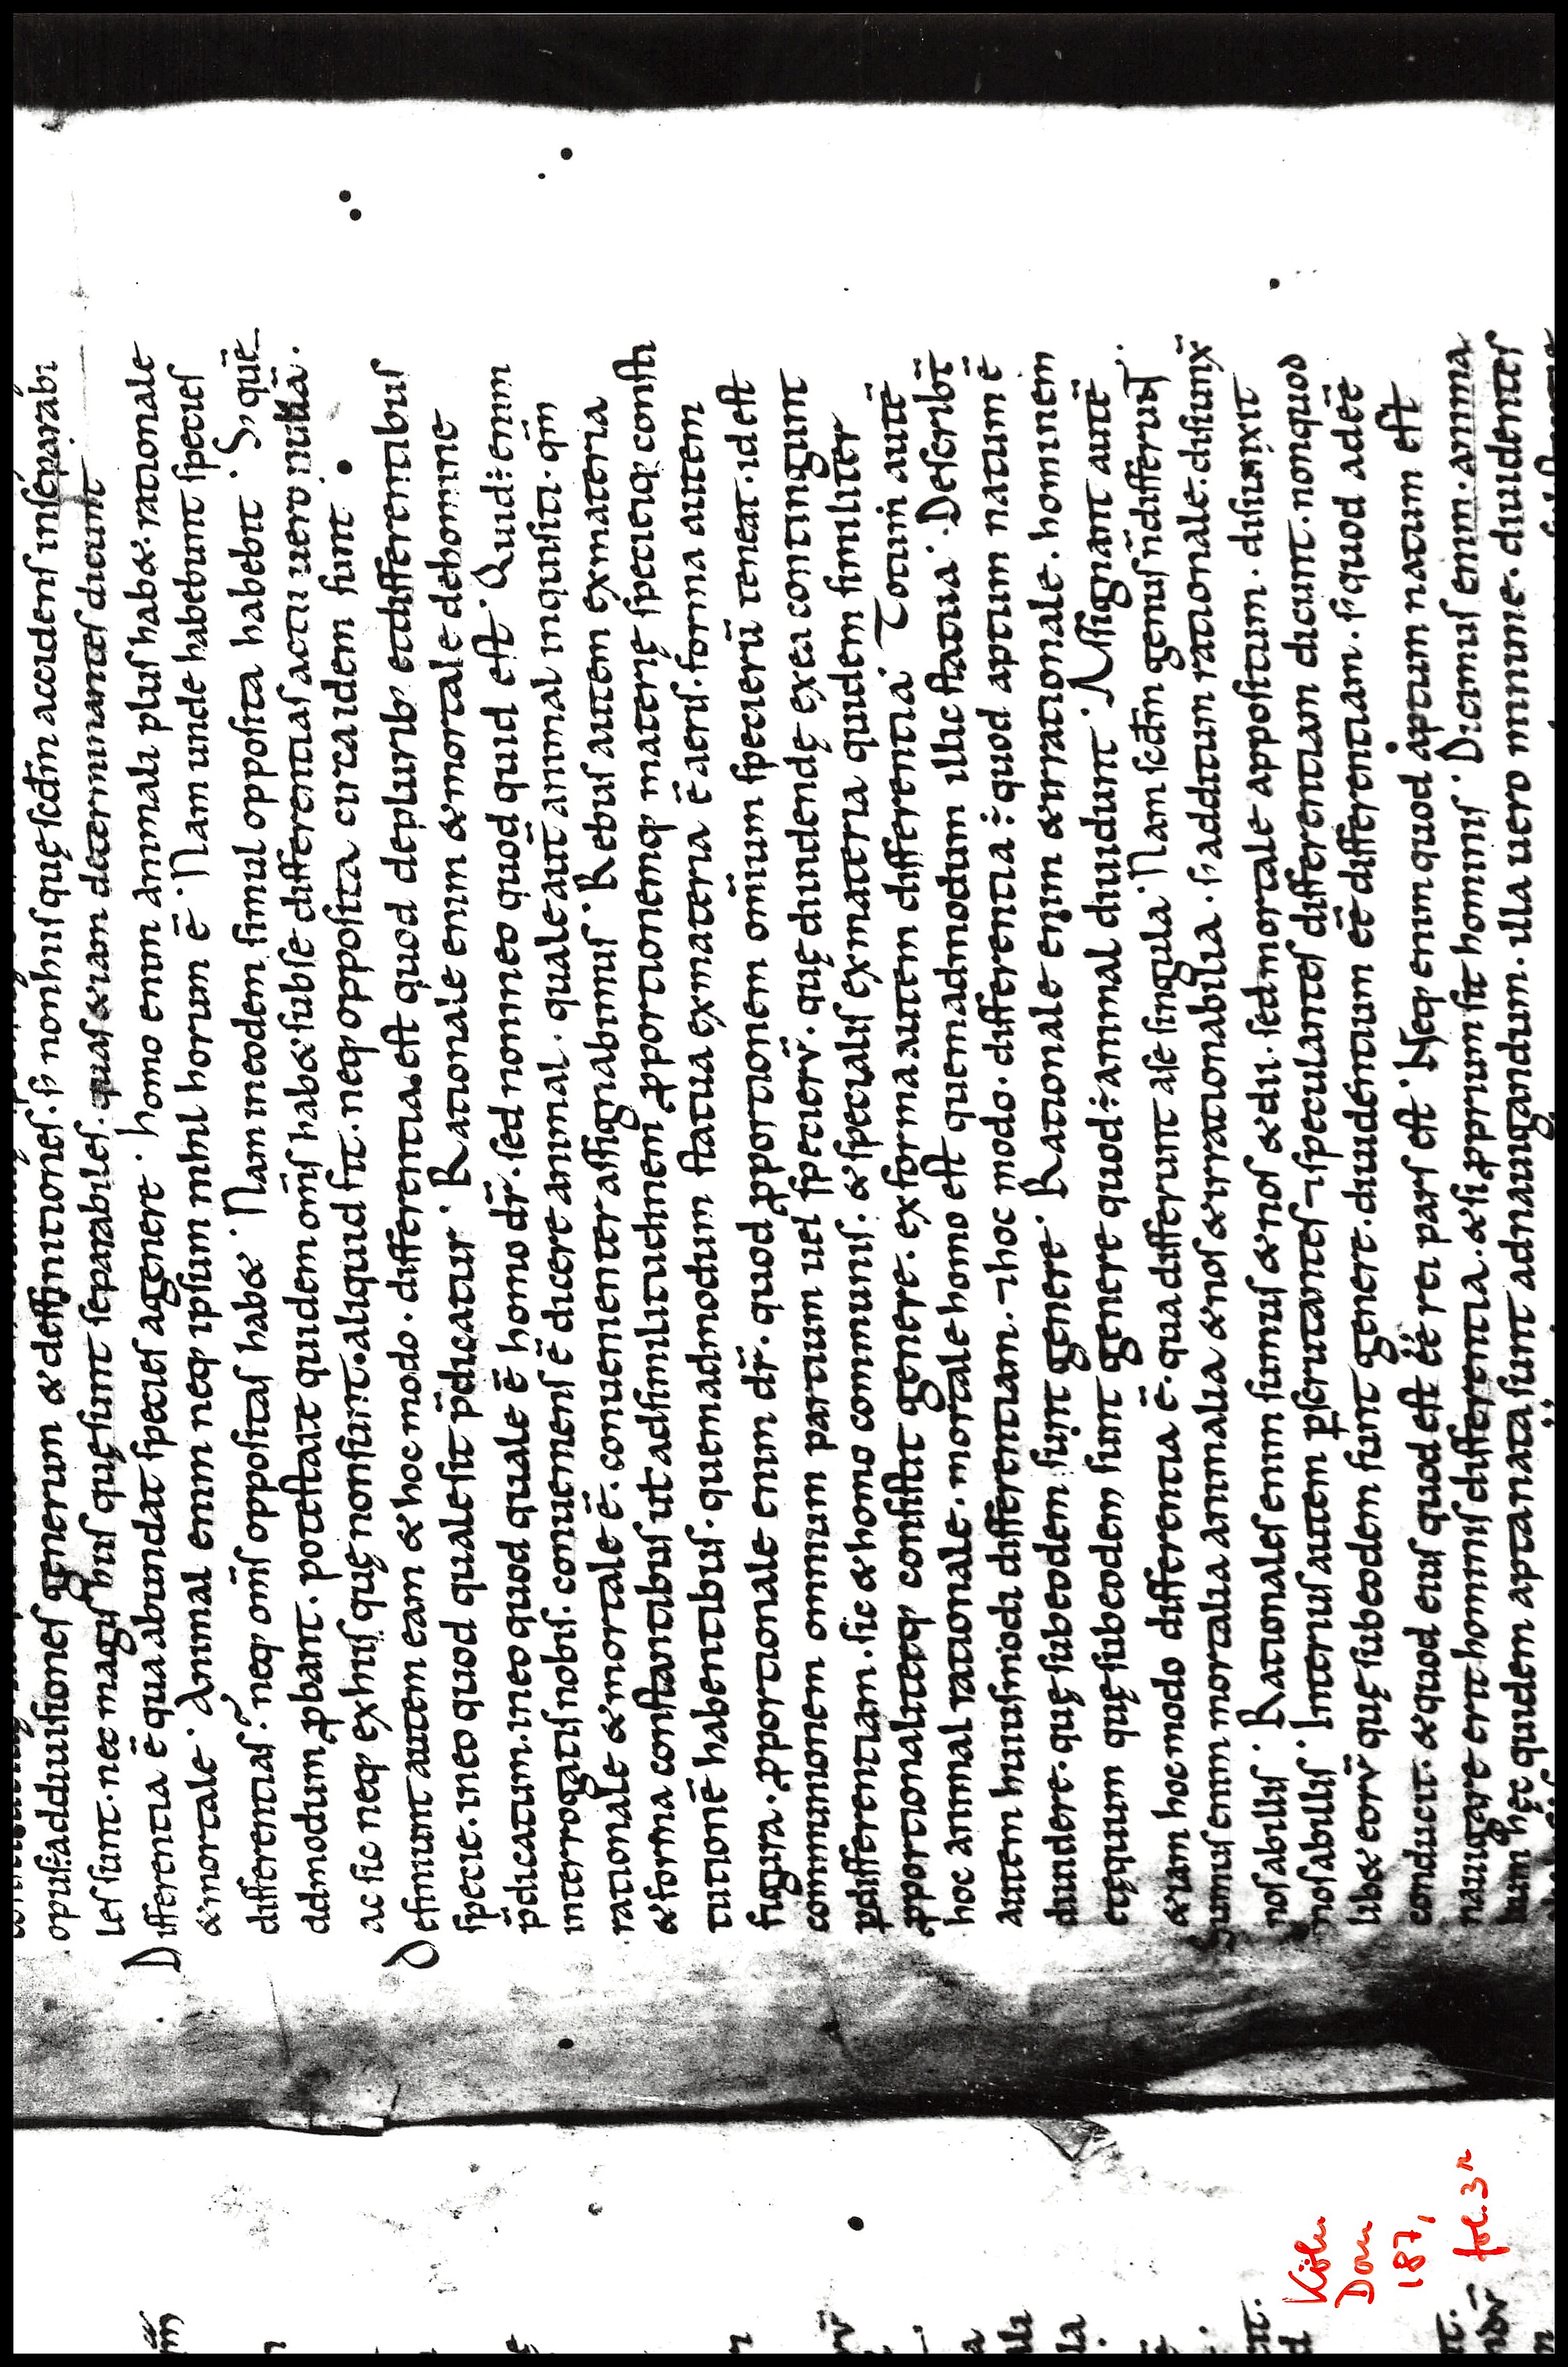 opus÷ addiuisiones generum & deffinitiones. s; nonhis quę scđm accidens inseparabi
les sunt. nec magis his quę sunt separabiles. quas & iam determinantes dicunt
Differentia ē qua abundat species agenere. homo enim animali plus hab&. rationale
& mortale. Animal enim neq; ipsum nihil horum ē. Nam unde habebunt species
differentias? neq; om̄is oppositas hab&. Nam ineodem simul opposita habebt. S; quē
admodum ꝓbant. potestate quidem om̄is hab& subse differentias actu uero nullā.
ac sic neq; exhis quę nonsunt. aliquid fit. neq; opposita circa idem sunt.
Definiunt autem eam & hoc modo. differentia est quod deplurib; & differentibus
specie. ineo quod quale sit p̄dicatur. Rationale enim & mortale dehomine
p̄dicatum. ineo quod quale ē homo dr̄. sed nonineo quod quid est. Quid ÷ enim
interrogatis nobis. conueniens ē dicere animal. quale aut̄ animal inquisiti. qm̄
rationale & mortale ē. conuenienter assignabimus. Rebus autem exmateria
& forma constantibus ut adsimilitudinem ꝓportionemq; materię specieiq; consti
tutionē habentibus. quemadmodum statua exmateria ē aeris. forma autem
figura. ꝓportionale enim dr̄. quod ꝓportionem om̄ium specierū teneat. id est
communionem omnium partium uel specierū. quę diuidendę exea contingunt
ꝑdifferentiam. sic & homo communis. & specialis exmateria quidem similiter
ꝓportionaliterq; consistit genere. exforma autem differentia. Totum autē
hoc animal rationale. mortale homo est quemadmodum illic statua. Describt̄
autem huiusmodi differentiam. ⁊ hoc modo. differentia ÷ quod aptum natum ē
diuidere. quę subeodem sunt genere. Rationale enim & irrationale. hominem
etequum quę subeodem sunt genere quod ÷ animal diuidunt. Assignant autē
& iam hoc modo differentia ē. qua differunt ase singula. Nam scđm genus n̄ differunt.
Sumus enim mortalia animalia & nos & irrationabilia. s; additum rationale. disiunx̄
nos abillis. Rationales enim sumus & nos & dii. sed mortale appositum. disiunxit
nos abillis. Interius autem ꝑscrutantes ⁊ speculantes differentiam dicunt. nonquod
lib& eorū quę subeodem sunt genere. diuidentium eē differentiam. s; quod adeē
conducit. & quod eius quod est eē rei pars est. Neq; enim quod aptum natum est
nauigare erit hominis differentia. & si ꝓprium sit hominis. Dicimus enim. anima
lium hęc quidem aptanata sunt adnauigandum. illa uero minime. diuidentes
Köln
Dom
187,
fol. 3r